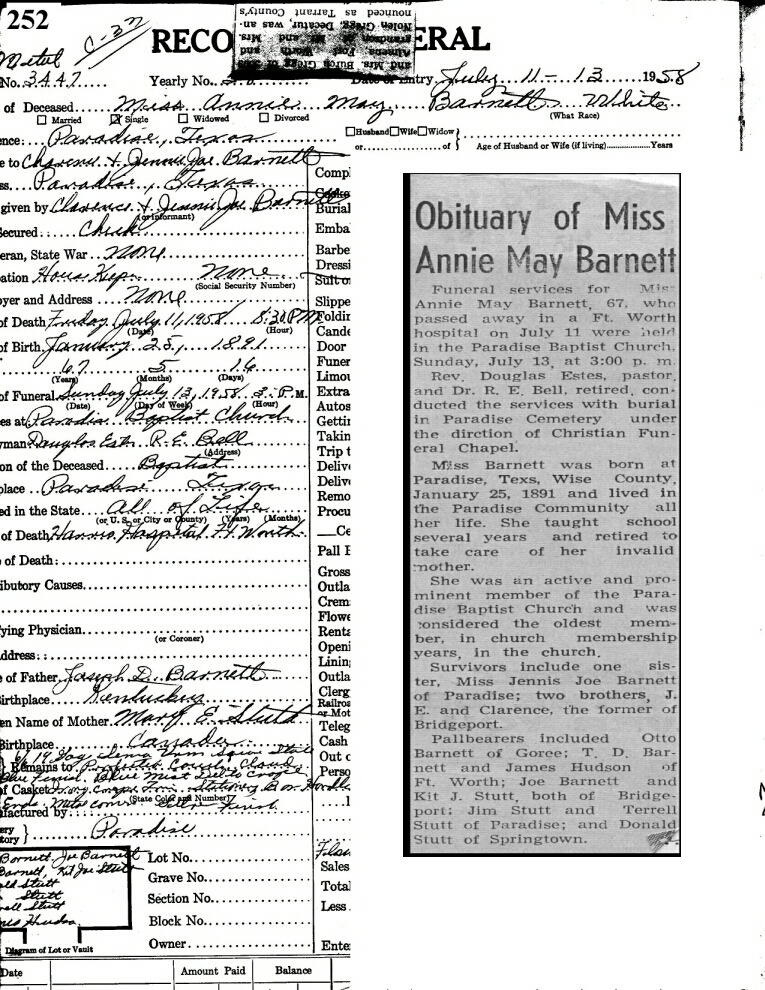 252
RECO ERAL
nounced as Tarrant County's
Nolen Gregg, Decatur, was an-
grandson of Mr. and Mrs.
Almena, Fort Worth and
and Mrs. Burch Gregg of
No. 3447 Yearly No. Date of Entry July 11 - 13 1958
of Deceased Miss Annie May Barnett White
(What Race)
Married Single Widowed Divorced
Husband Wife Widow
or of Age of Husband or Wife (if living) Years
ence: Paradise, Texas
e to Clarence & Jennie Joe Barnett
ss. Paradise, Texas
given by Clarence & Jennie Joe Barnett
(or informant)
Secured: Check
eran, State War None
ation House Keep. None
(Social Security Number)
oyer and Address None
of Death Friday July 11, 1958 8:30 PM
(Date) (Hour)
of Birth January 25, 1891
67 5 16
(Years) (Months) (Days)
of Funeral Sunday July 13, 1958 3: P.M.
(Date) (Day of Week) (Hour)
es at Paradise Baptist Church
yman Douglas Est. R. E. Bell
(Address)
on of the Deceased Baptist
place Paradise Texas
ed in the State All of Life
(or U. S. or City or County) (Years) (Months)
of Death Harris Hospital Ft. Worth
e of Death:
ibutory Causes
fying Physician
(or Coroner)
Address:
e of Father Joseph D. Barnett
Birthplace Kentucky
en Name of Mother Mary E. Stutt
Birthplace Canada
Remains to
of Casket
(State Color and Number)
factured by
ery
tory Paradise
Barnett, Joe Barnett
Barnett, Kit Joe Stutt
ald Stutt
Stutt
rell Stutt
mes Hudson
Diagram of Lot or Vault
Lot No.
Grave No.
Section No.
Block No.
Owner
Date Amount Paid Balance
Compl
Burial
Emba
Barbe
Dressi
Suit or
Slippe
Foldin
Cand
Door
Funer
Limou
Extra
Autos
Gettin
Takin
Trip t
Delive
Delive
Remo
Procu
Ce
Pall B
Gross
Outla
Crem
Flowe
Renta
Openi
Lining
Outla
Clerg
Railroa
or Mot
Teleg
Cash
Out o
Perso
Sales
Total
Less
Enter
Obituary of Miss
Annie May Barnett
Funeral services for Miss
Annie May Barnett, 67, who
passed away in a Ft. Worth
hospital on July 11 were held
in the Paradise Baptist Church,
Sunday, July 13, at 3:00 p. m.
Rev. Douglas Estes, pastor,
and Dr. R. E. Bell, retired, con-
ducted the services with burial
in Paradise Cemetery under
the dirction of Christian Fun-
eral Chapel.
Miss Barnett was born at
Paradise, Texs, Wise County,
January 25, 1891 and lived in
the Paradise Community all
her life. She taught school
several years and retired to
take care of her invalid
mother.
She was an active and pro-
minent member of the Para-
dise Baptist Church and was
considered the oldest mem-
ber, in church membership
years, in the church.
Survivors include one sis-
ter, Miss Jennis Joe Barnett
of Paradise; two brothers, J.
E. and Clarence, the former of
Bridgeport.
Pallbearers included Otto
Barnett of Goree; T. D. Bar-
nett and James Hudson of
Ft. Worth; Joe Barnett and
Kit J. Stutt, both of Bridge-
port; Jim Stutt and Terrell
Stutt of Paradise; and Donald
Stutt of Springtown.